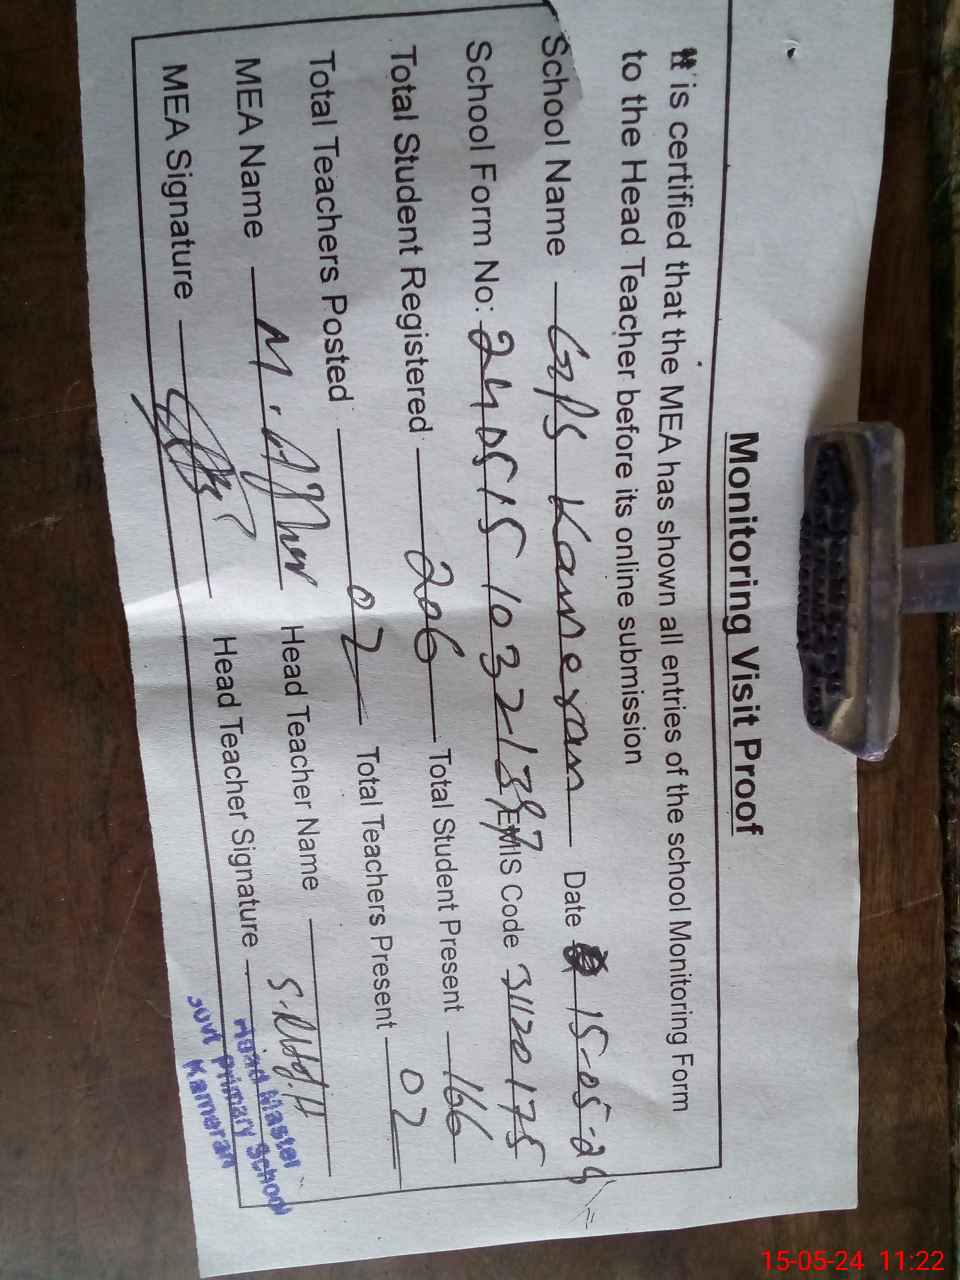 Monitoring Visit Proof
It is certified that the MEA has shown all entries of the school Monitoring Form
to the Head Teacher before its online submission
School Name GPS Kameran Date 15-05-24
School Form No: 2405151032139 EMIS Code 31120175
Total Student Registered 206 Total Student Present 166
Total Teachers Posted 02 Total Teachers Present 02
MEA Name M. Head Teacher Name
MEA Signature Head Teacher Signature
Head Master
Govt Primary School
Kameran
15-05-24 11:22